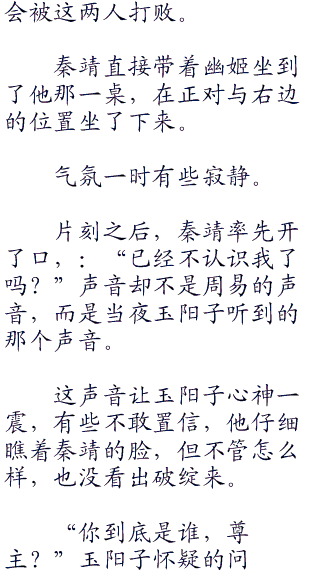 会被这两人打败。
秦靖直接带着幽姬坐到
了他那一桌，在正对与右边
的位置坐了下来。
气氛一时有些寂静。
片刻之后，秦靖率先开
了口，：“已经不认识我了
吗？”声音却不是周易的声
音，而是当夜玉阳子听到的
那个声音。
这声音让玉阳子心神一
震，有些不敢置信，他仔细
瞧着秦靖的脸，但不管怎么
样，也没看出破绽来。
“你到底是谁，尊
主？”玉阳子怀疑的问